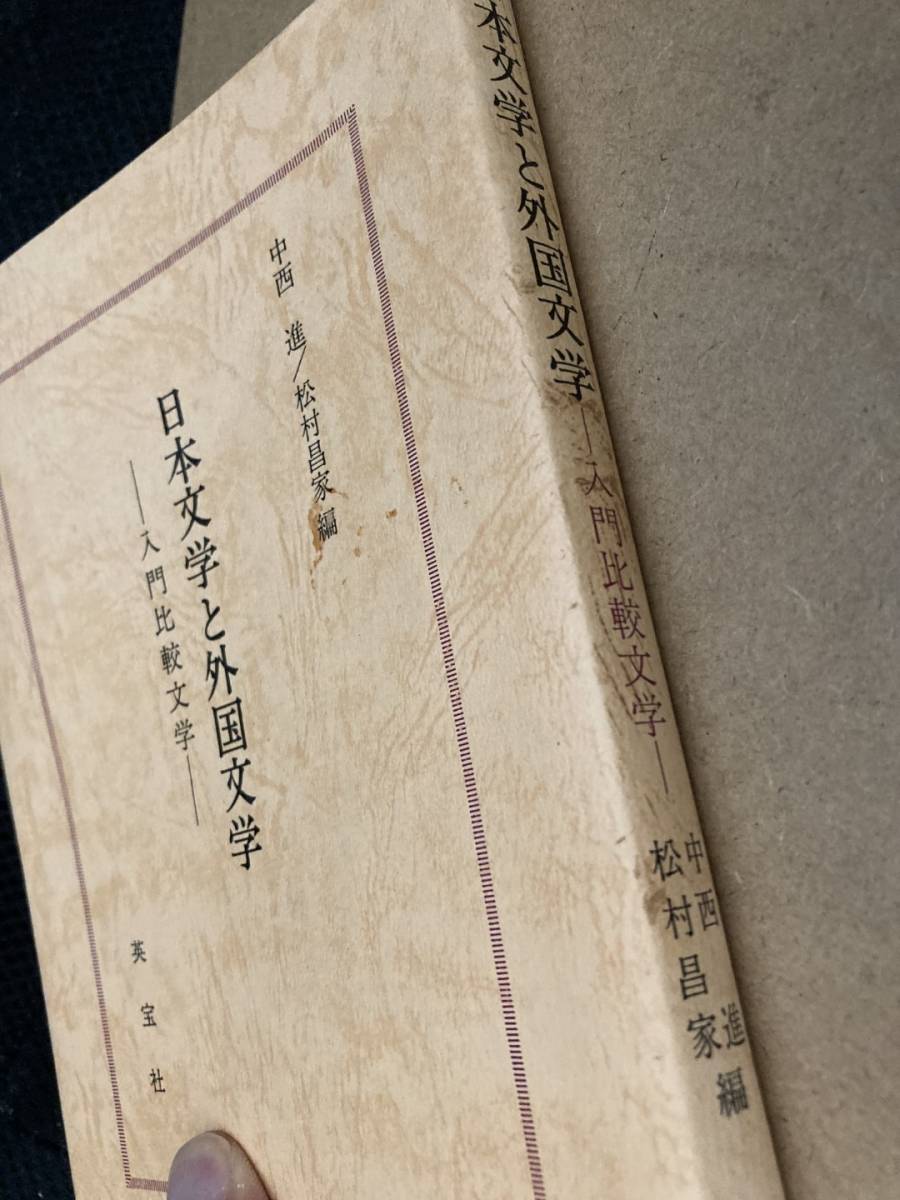 中西 進/松村昌家 編
日本文学と外国文学
―入門比較文学―
英宝社
本文学と外国文学 ―入門比較文学―
中西 進
松村昌家 編